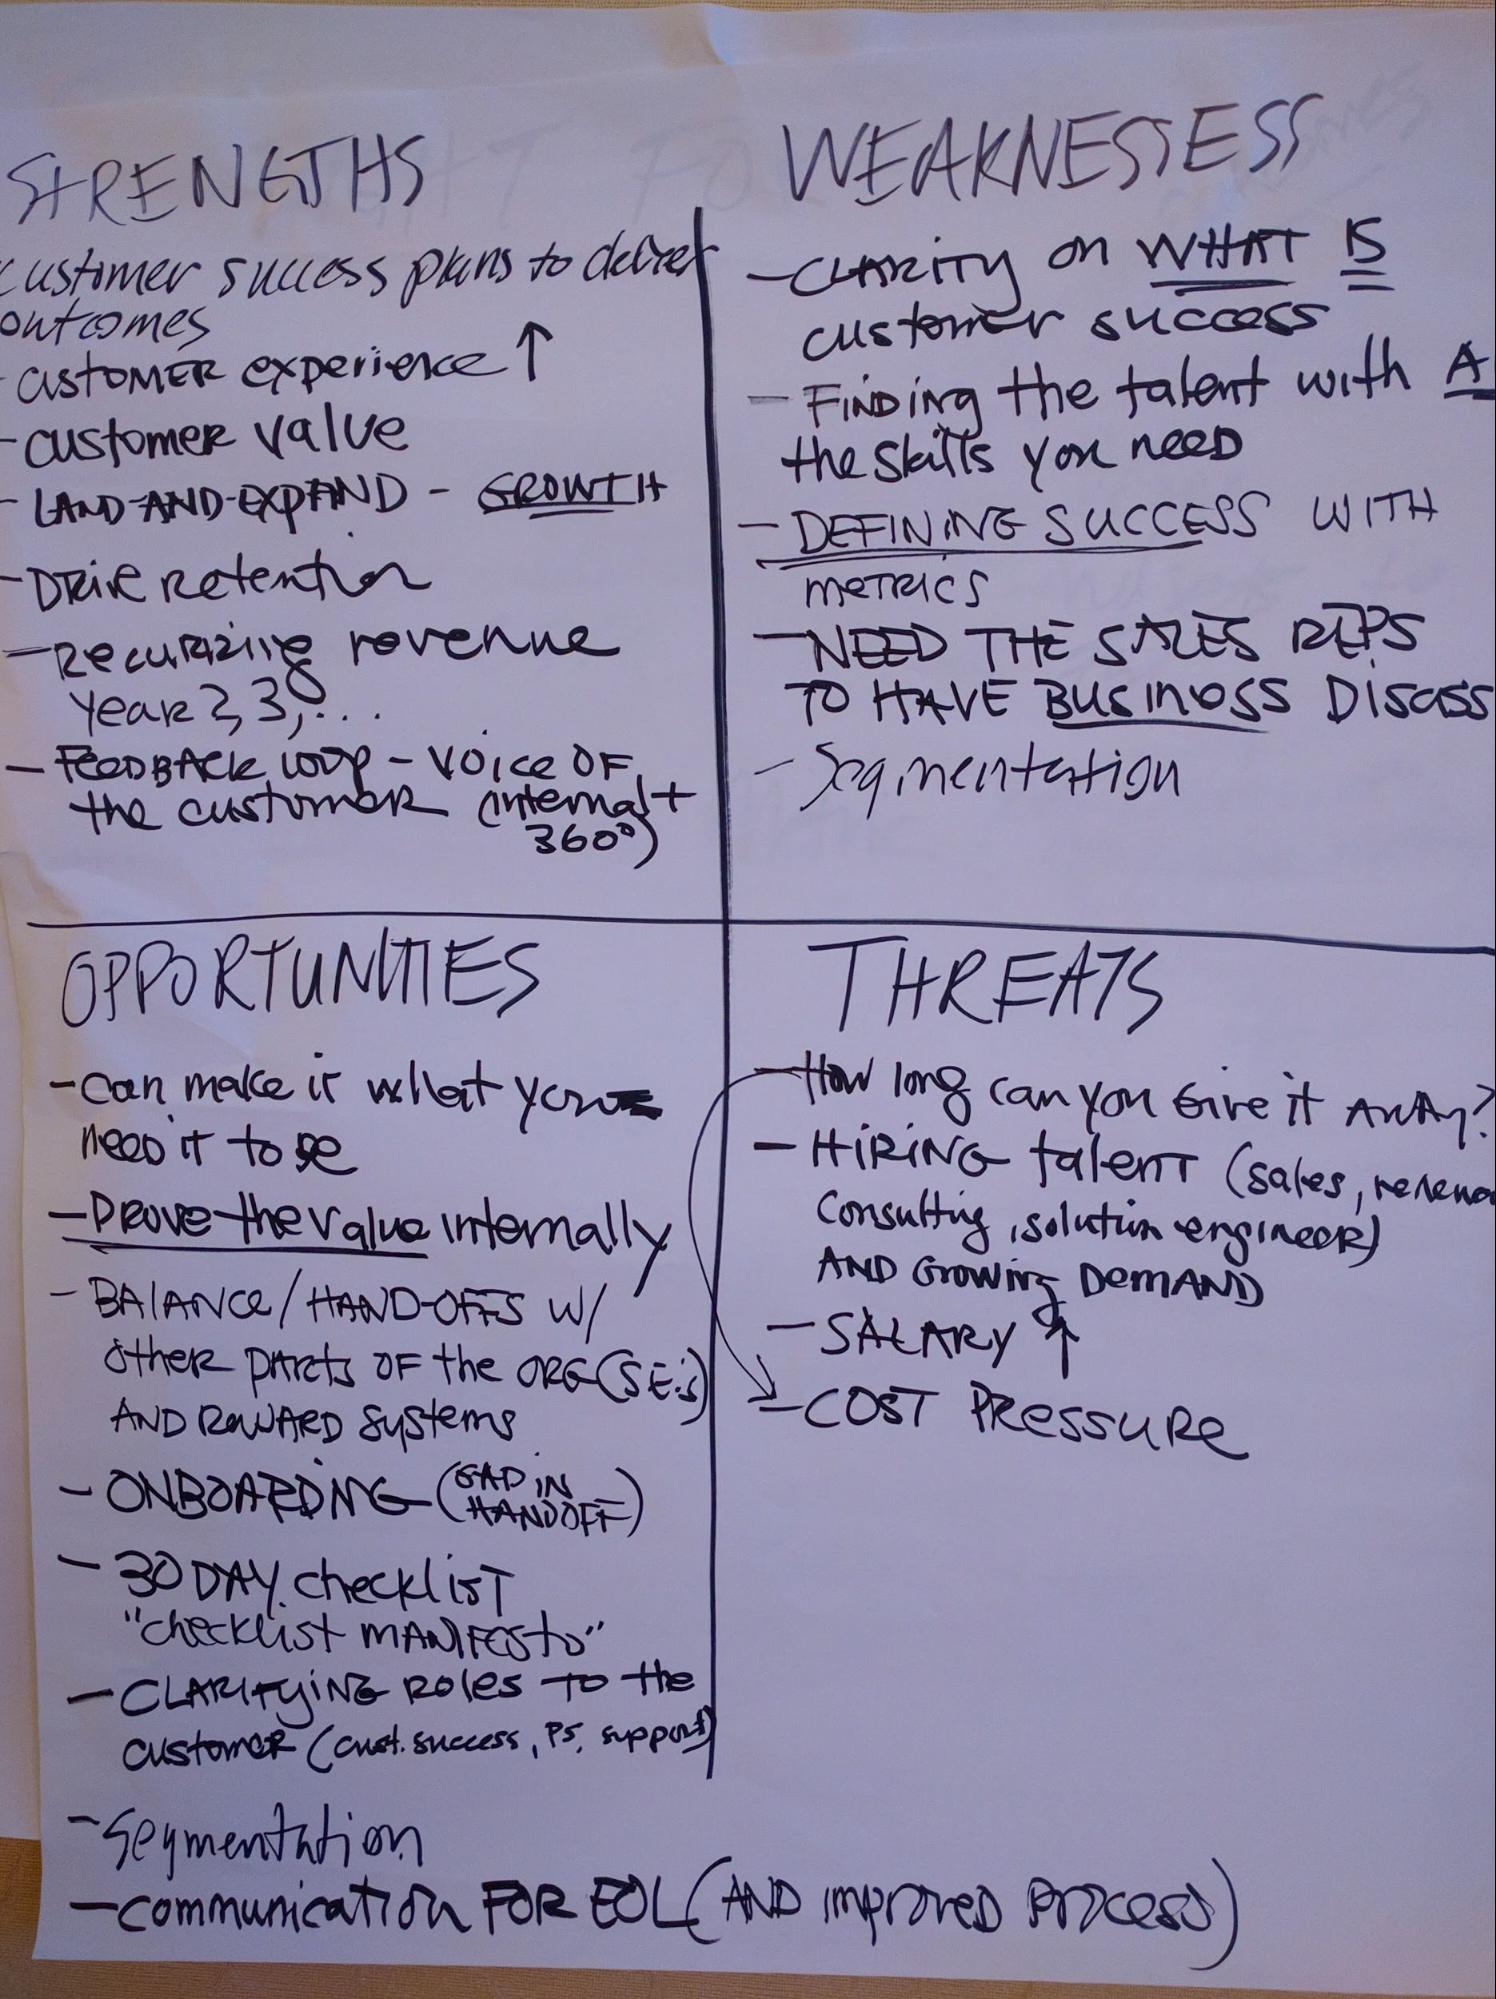 STRENGTHS
customer success plans to deliver
outcomes
- CUSTOMER experience ↑
- CUSTOMER value
- LAND-AND-EXPAND - GROWTH
- DRIVE retention
- Recurring revenue
year 2, 3, ...
- FEEDBACK LOOP - VOICE OF
the customer (internal +
360°)
WEAKNESSESS
- CLARITY on WHAT IS
customer success
- FINDing the talent with A
the skills you need
- DEFINING SUCCESS WITH
METRICS
- NEED THE SALES REPS
TO HAVE BUSINESS DISCUSS
- Segmentation
OPPORTUNITIES
- can make it what you
need it to be
- PROVE the value internally
- BALANCE/HAND-OFFS W/
other parts OF the ORG (SE's)
AND REWARD systems
- ONBOARDING (GAP IN
HANDOFF)
- 30 DAY checklist
"checklist MANIFESTO"
- CLARIFYING ROLES TO the
customer (cust. success, PS, support)
- Segmentation
- communication FOR EOL (AND improved process)
THREATS
- How long can you Give it AWAY?
- HIRING talent (sales, renewa
consulting, solution engineer)
AND Growing DEMAND
- SALARY ↑
- COST PRESSURE